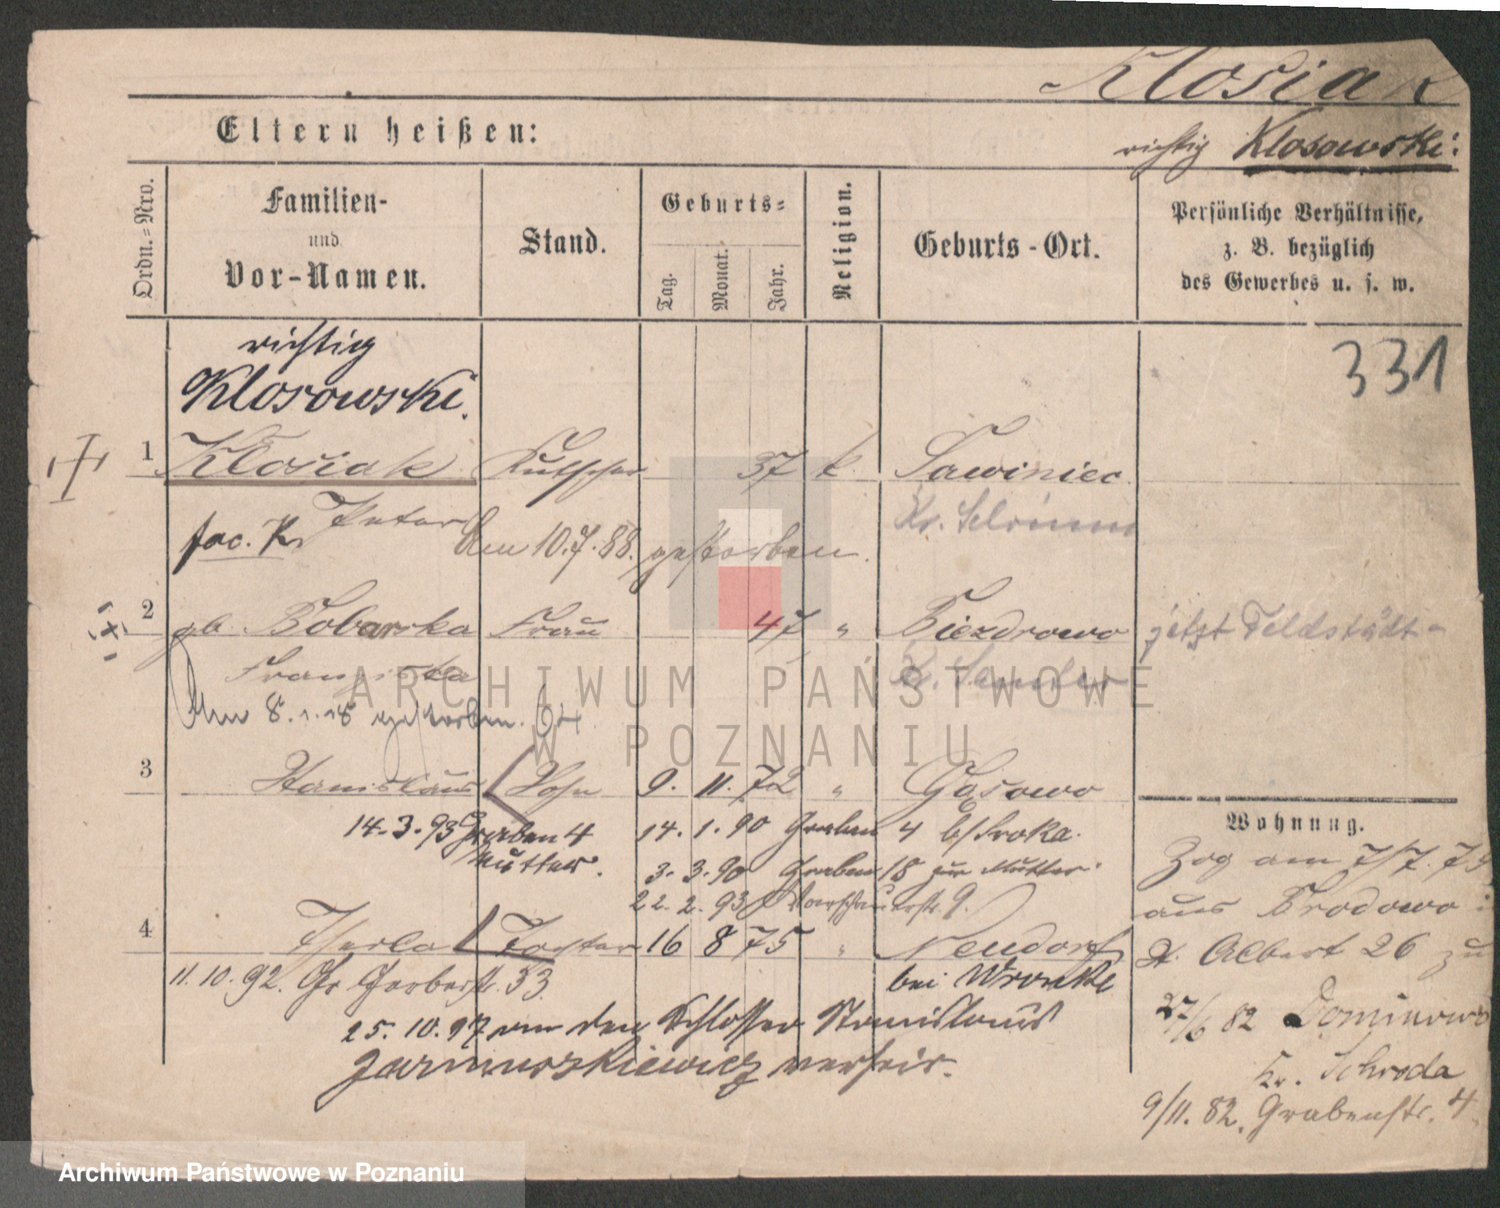 Klosiak
Eltern heißen:
richtig Klosowski.
Ordn.=Nro.
Familien-
und
Vor-Namen.
Stand.
Geburts=
Tag.
Monat.
Jahr.
Religion.
Geburts-Ort.
Persönliche Verhältnisse,
z. B. bezüglich
des Gewerbes u. s. w.
richtig
Klosowski.
331
1 Klosiak Kutscher 37 k. Sawiniec
Peter Kr. Schrimm
fac. K. Am 10.7.88. gestorben.
2 gb. Bobarska Frau 47 " Biezdrowo jetzt Feldstädt-
Franziska Kr. Samter
Am 8.1.18 gestorben. 64
ARCHIWUM PAŃSTWOWE
W POZNANIU
3 Stanislaus Sohn 9. 11. 72 " Gąsowo
14.3.93 Graben 4 14. 1. 90 Graben 4 b/Sroka.
Mutter. 3. 3. 90 Graben 18 zur Mutter.
22. 2. 93 9.
4 Thecla Tochter 16 8 75 " Neudorf
bei Wronke
11.10.92. Gr Gerberstr. 33.
25.10.97 an den Schlosser Stanislaus
verheir.
Wohnung.
Zog am 7/7.
aus Brodowo
Albert 26 zu
27/6 82 Dominowo
Kr. Schroda
9/11. 82. Grabenstr. 4
Archiwum Państwowe w Poznaniu